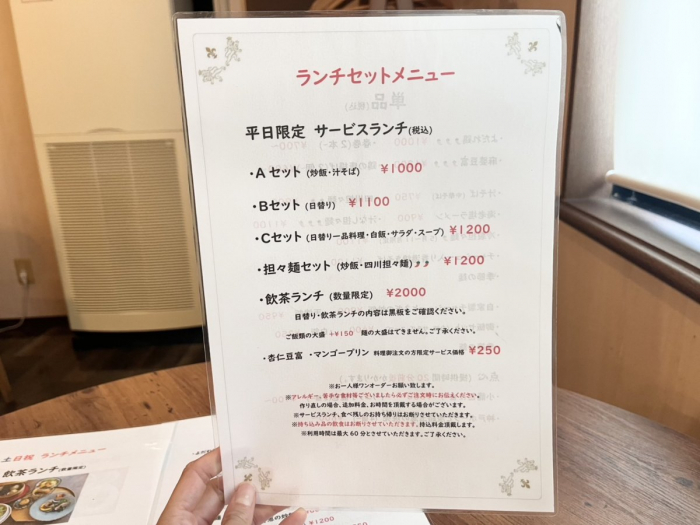 ランチセットメニュー
平日限定 サービスランチ(税込)
・Aセット (炒飯・汁そば) ¥1000
・Bセット (日替り) ¥1100
・Cセット (日替り一品料理・白飯・サラダ・スープ) ¥1200
・担々麺セット (炒飯・四川担々麺) ¥1200
・飲茶ランチ (数量限定) ¥2000
日替り・飲茶ランチの内容は黒板をご確認ください。
ご飯類の大盛 +¥150 麺の大盛はできません。ご了承ください。
・杏仁豆富 ・マンゴープリン 料理御注文の方限定サービス価格 ¥250
※お一人様ワンオーダーお願い致します。
※アレルギー、苦手な食材等ございましたら必ずご注文時にお伝えください。
作り直しの場合、追加料金、お時間を頂戴する場合がございます。
※サービスランチ、食べ残しのお持ち帰りはお断りさせていただきます。
※持ち込み品の飲食はお断りさせていただきます。持込料金頂戴します。
※利用時間は最大60分とさせていただきます。ご了承ください。
土日祝 ランチメニュー
飲茶ランチ(数量限定)
¥1200